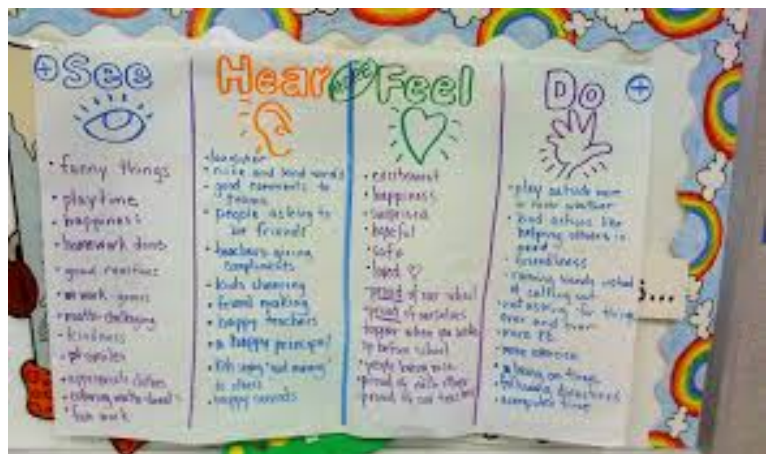 See
• funny things
• playtime
• happiness
• homework done
• good
• kindness
• fun work
Hear
• laughter
• nice and kind words
• good comments to
• people asking to
be friends
• teachers giving
compliments
• kids cheering
• friend making
• happy teachers
• a happy principal
• kids saying "good morning"
• happy sounds
Feel
• excitement
• happiness
• surprised
• hopeful
• safe
• loved ♡
• proud of our school
• proud of ourselves
happier when we wake
up before school
• people being nice
• proud of each other
• proud of our teachers
Do
• play outside more
in nicer weather
• kind actions like
helping others in
need
• friendliness
• raising hands instead
of calling out
• not asking for things
over and over
• more P.E.
• more exercise
• being on time
• following directions
• computer time